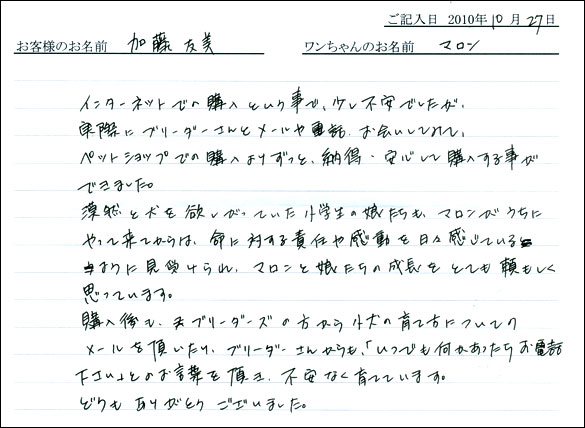 ご記入日 2010年10月27日
お客様のお名前 加藤友美 ワンちゃんのお名前 マロン
インターネットでの購入という事で、少し不安でしたが、
実際にブリーダーさんとメールや電話、お会いしてみて、
ペットショップでの購入よりずっと、納得・安心して購入する事が
できました。
漠然と犬を欲しがっていた小学生の娘たちも、マロンがうちに
やって来てからは、命に対する責任や感動を日々感じている
ように見受けられ、マロンと娘たちの成長をとても頼もしく
思っています。
購入後も、ブリーダーズの方から小犬の育て方についての
メールを頂いたり、ブリーダーさんからも、「いつでも何かあったらお電話
下さい」とのお言葉を頂き、不安なく育てています。
どうもありがとうございました。